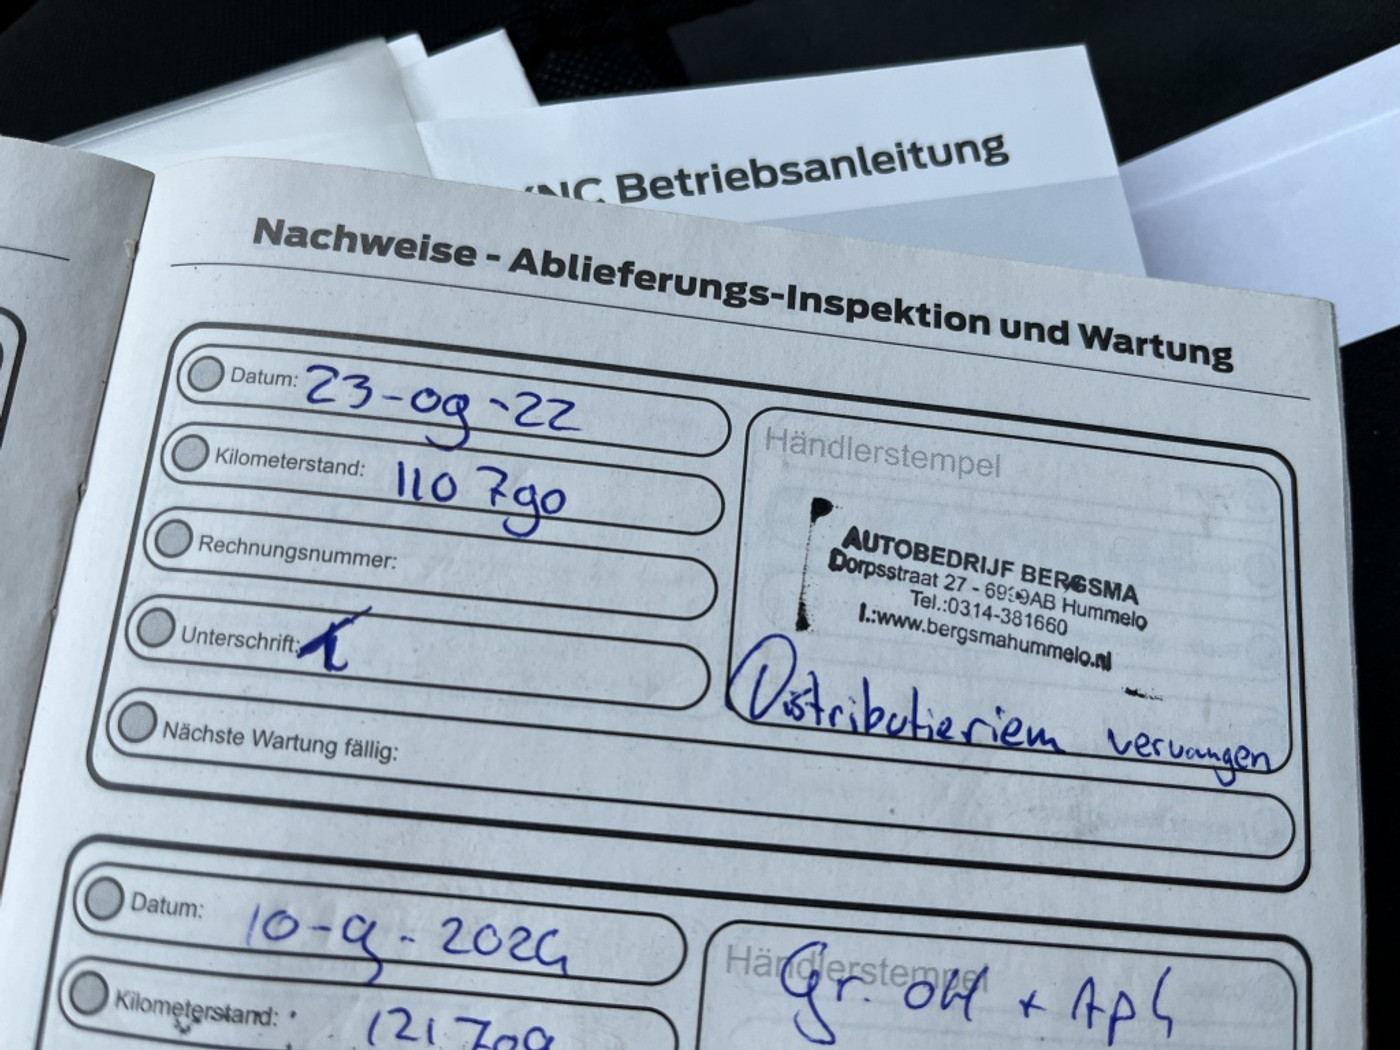 Betriebsanleitung
Nachweise - Ablieferungs-Inspektion und Wartung
Datum: 23-09-22
Kilometerstand: 110 790
Rechnungsnummer:
Unterschrift:
Nächste Wartung fällig:
Händlerstempel
AUTOBEDRIJF BERGSMA
Dorpsstraat 27 - Hummelo
Tel.:0314-381660
I.:www.bergsmahummelo.nl
Distributieriem vervangen
Datum: 10-9-2024
Kilometerstand: 121 709
Händlerstempel
Gr. ott + Apk